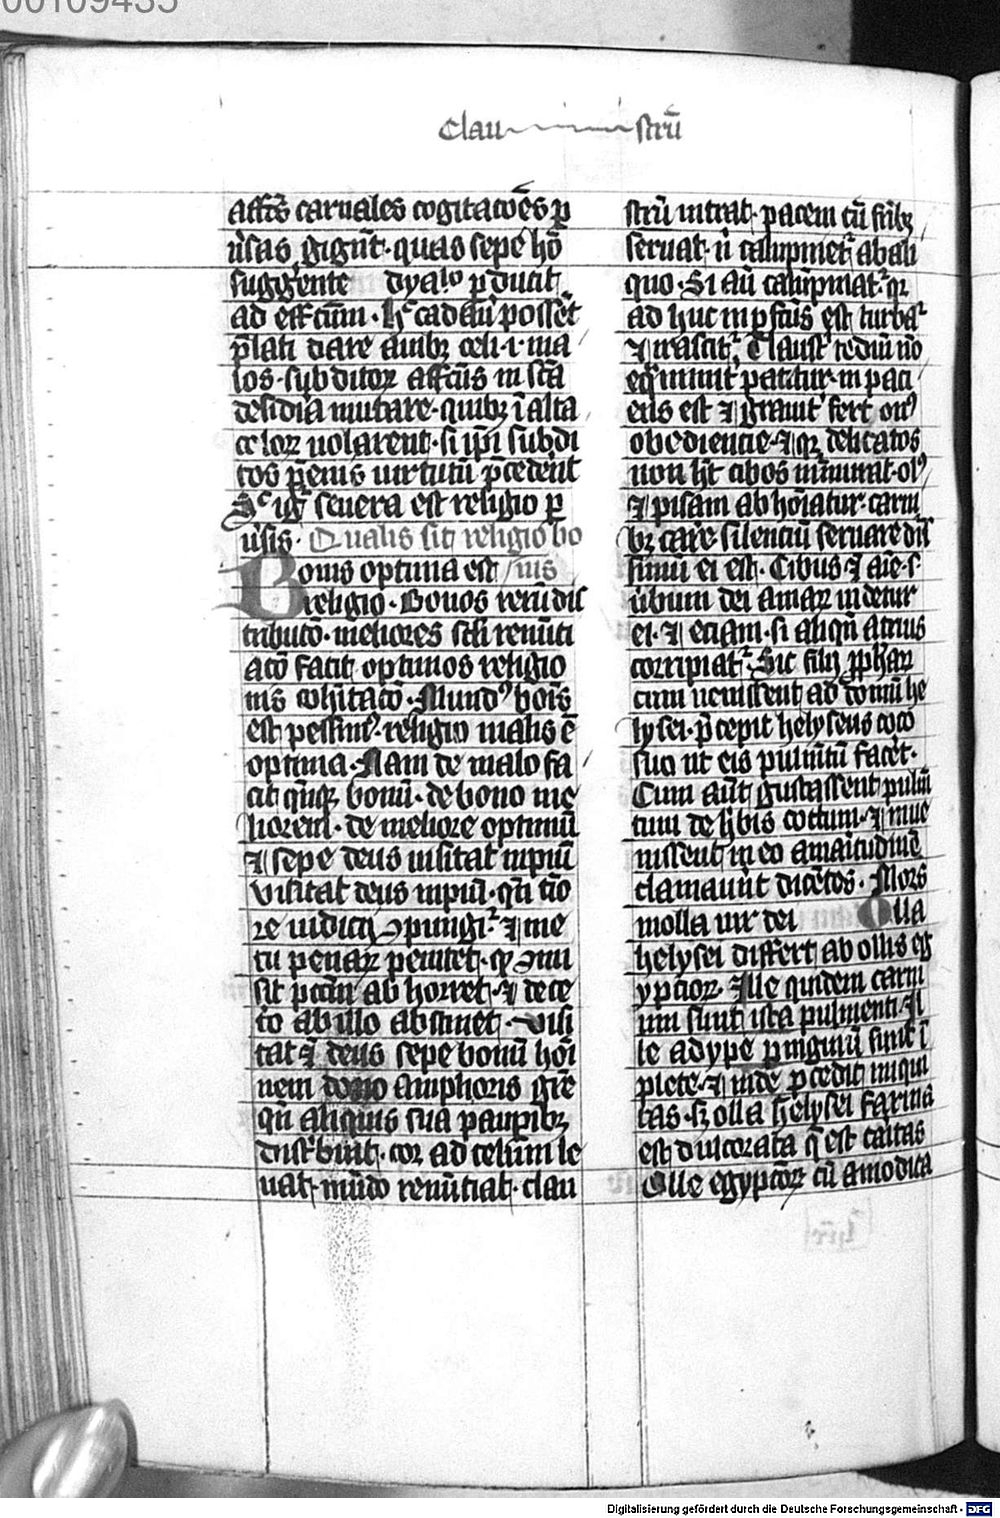 00109435
Clau strū
affcōs carnales cogitacōēs p
ūsas gignūt · quas sepe hō
suggerente dyalo pducit
ad effcūm · Hͨ cadau' possēt
plati dare auibꝫ celi · i · ma
los · subditoꝝ affcūs in scā
desidia mutare · quibꝫ ī alta
celoꝝ volarent · si ipi subdi
tos pēnis uirtutū pcederēt
Sͨ igͭ seuera est religio p
ūsis · Qualis sit religio bo
Bonis optima est nis
religio · Bonos rerū dis
tribucō · meliores scli renūti
acō facit optimos religio
nis cohītacō · Mundꝰ bonis
est pessimꝰ · religio malis ē
optima · Nam de malo fa
cit qūqꝫ bonū · de bono me
liorem · de meliore optimū
⁊ sepe deus uisitat inpiū
visitat deus inpiū · qn̄ tīo
re iudicij ꝯpungit² ⁊ me
tu penaꝝ penitet · qꝫ ꝯmi
sit pcām ab horret · ⁊ dece
to ab illo abstinet · Visi
tat ⁊ deus sepe bonū hoī
nem dono amphoris gr̄e
qn̄ aliquis sua paupibꝫ
dist'buit · cor ad celum le
uat · mūdo renūtiat · clau
strū intrat · pacem cū fr̄ibꝫ
seruat · n̄ calūpniet² ab ali
quo · Si aū calūpniat² qꝛ
ad huc inpfcūs est turbat²
⁊ irascit² Claust' tediū nō
eq̄nimit' patitur · inpaci
ens est ⁊ grauit' fert onꝰ
obediencie · ⁊ qꝛ delicatos
non hēt cibos m̄murat · olꝰ
⁊ pisam abhoīatur · carni
bꝫ care · silenciū seruare diff
simū ei est · Cibus ⁊ aīe · s ·
ūbum dei amaꝝ uidetur
ei · ⁊ eciam · si aliqn̄ acrius
corripiat² · Sic filij pphaꝝ
cum uenissent ad domū he
lysei · pcepit helyseus coco
suo ut eis pulmtū facet ·
Cum aūt gustassent pulm̄
tum de h'bis coctum · ⁊ inue
nissent in eo amaritudinē
clamauūt dicētes · Mors
in olla uir dei Olla
helysei differt ab ollis eg
yptioꝝ · Ille quidem carni
um sunt ista pulmenti · Il
le adype pinguiū sunt ī
plete · ⁊ inde pcedit iniqui
tas · sꝫ olla helysei farina
est dulcorata q̄ est caitas
Olle egyptioꝝ cū a modica
Digitalisierung gefördert durch die Deutsche Forschungsgemeinschaft - DFG